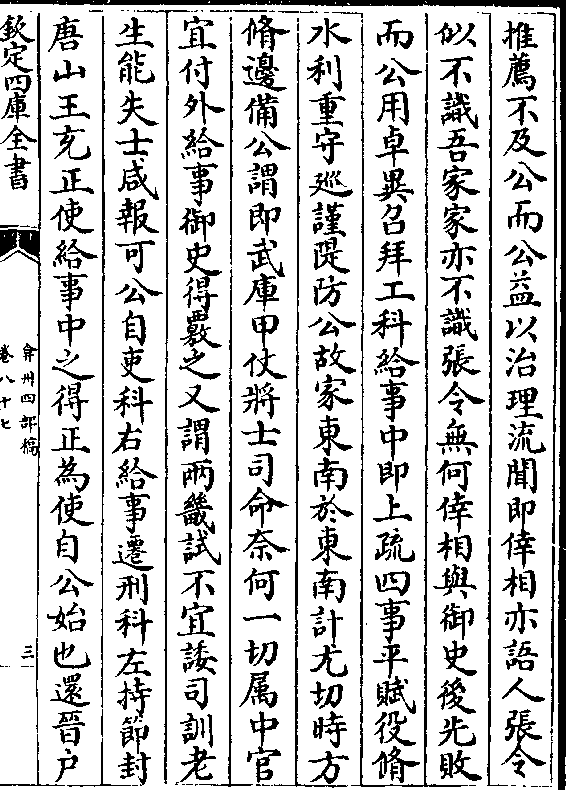 推薦不及公而公益以治理流聞即倖相亦語人張令
似不識吾家家亦不識張令無何倖相與御史後先敗
而公用卓異召拜工科給事中即上疏四事平賦役脩
水利重守廵謹隄防公故家東南於東南計尤切時方
脩邊備公謂即武庫甲仗將士司命奈何一切属中官
宜付外給事御史得覈之又謂兩畿試不宜諉司訓老
生能失士咸報可公自吏科右給事遷刑科左持節封
唐山王充正使給事中之得正為使自公始也還晉户
欽定四庫全書
弇州四部稿
卷八十七
三